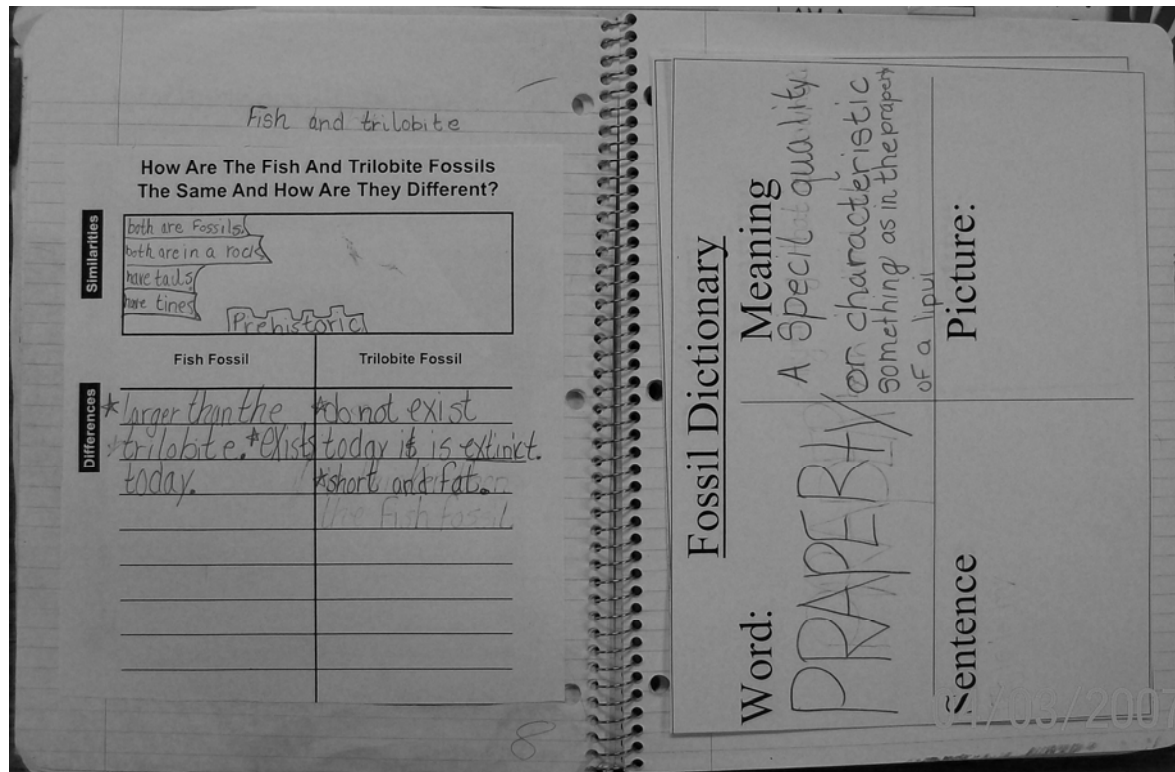 Fish and trilobite
How Are The Fish And Trilobite Fossils
The Same And How Are They Different?
Similarities
both are Fossils
both are in a rock
have tails
have tines
Prehistoric
Fish Fossil
Trilobite Fossil
Differences
*larger than the
trilobite. *exists
today.
*do not exist
today it is extinct.
*short and fat.
the Fish fossil
8
Fossil Dictionary
Word:
PRAPERTY
Meaning
A Specil quality
or characteristic
something as in the praperty
of a lipul
Sentence
Picture: